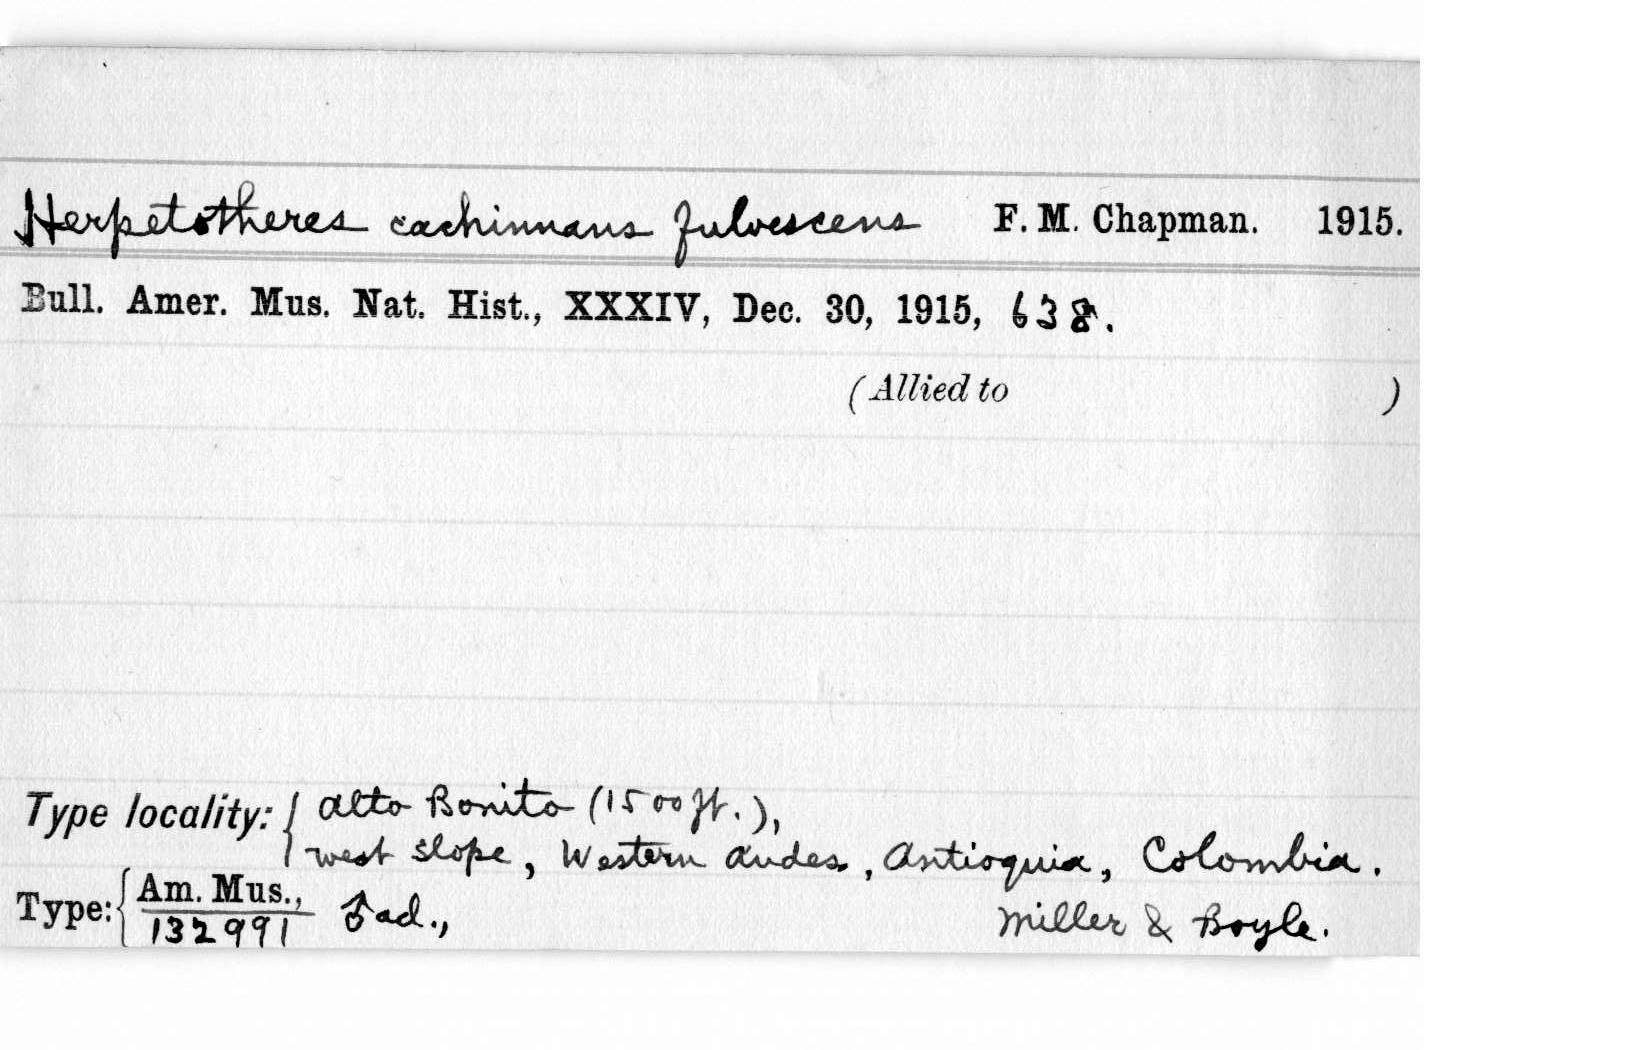 Herpetotheres cachinnans fulvescens F. M. Chapman. 1915.
Bull. Amer. Mus. Nat. Hist., XXXIV, Dec. 30, 1915, 638.
(Allied to )
Type locality: { Alto Bonito (1500 ft.),
west slope, Western Andes, Antioquia, Colombia.
Type: { Am. Mus., 132991 ♂ ad., Miller & Boyle.